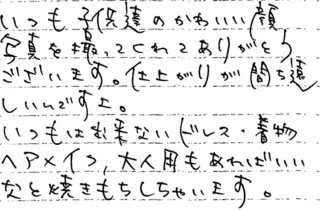 いつも子供達のかわいい顔
写真を撮ってくれてありがとう
ございます。仕上がりが待ち遠
しいんですよ。
いつもは出来ないドレス・着物
ヘアメイク、大人用もあればいい
なと焼きもちしちゃいます。